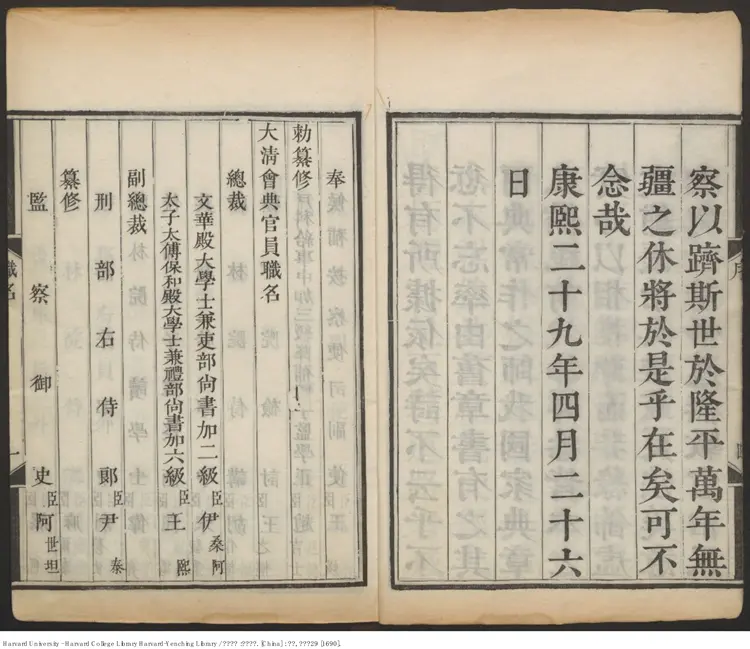 察以躋斯世於隆平萬年無
疆之休將於是乎在矣可不
念哉
康熙二十九年四月二十六
日
奉
勅纂修
大清會典官員職名
總裁
文華殿大學士兼吏部尚書加二級臣伊桑阿
太子太傅保和殿大學士兼禮部尚書加六級臣王熙
副總裁
刑部右侍郎臣尹泰
纂修
監察御史臣阿世坦
職名
一
Harvard University - Harvard College Library Harvard-Yenching Library / ???? :????. [China] : ??, ???29 [1690].